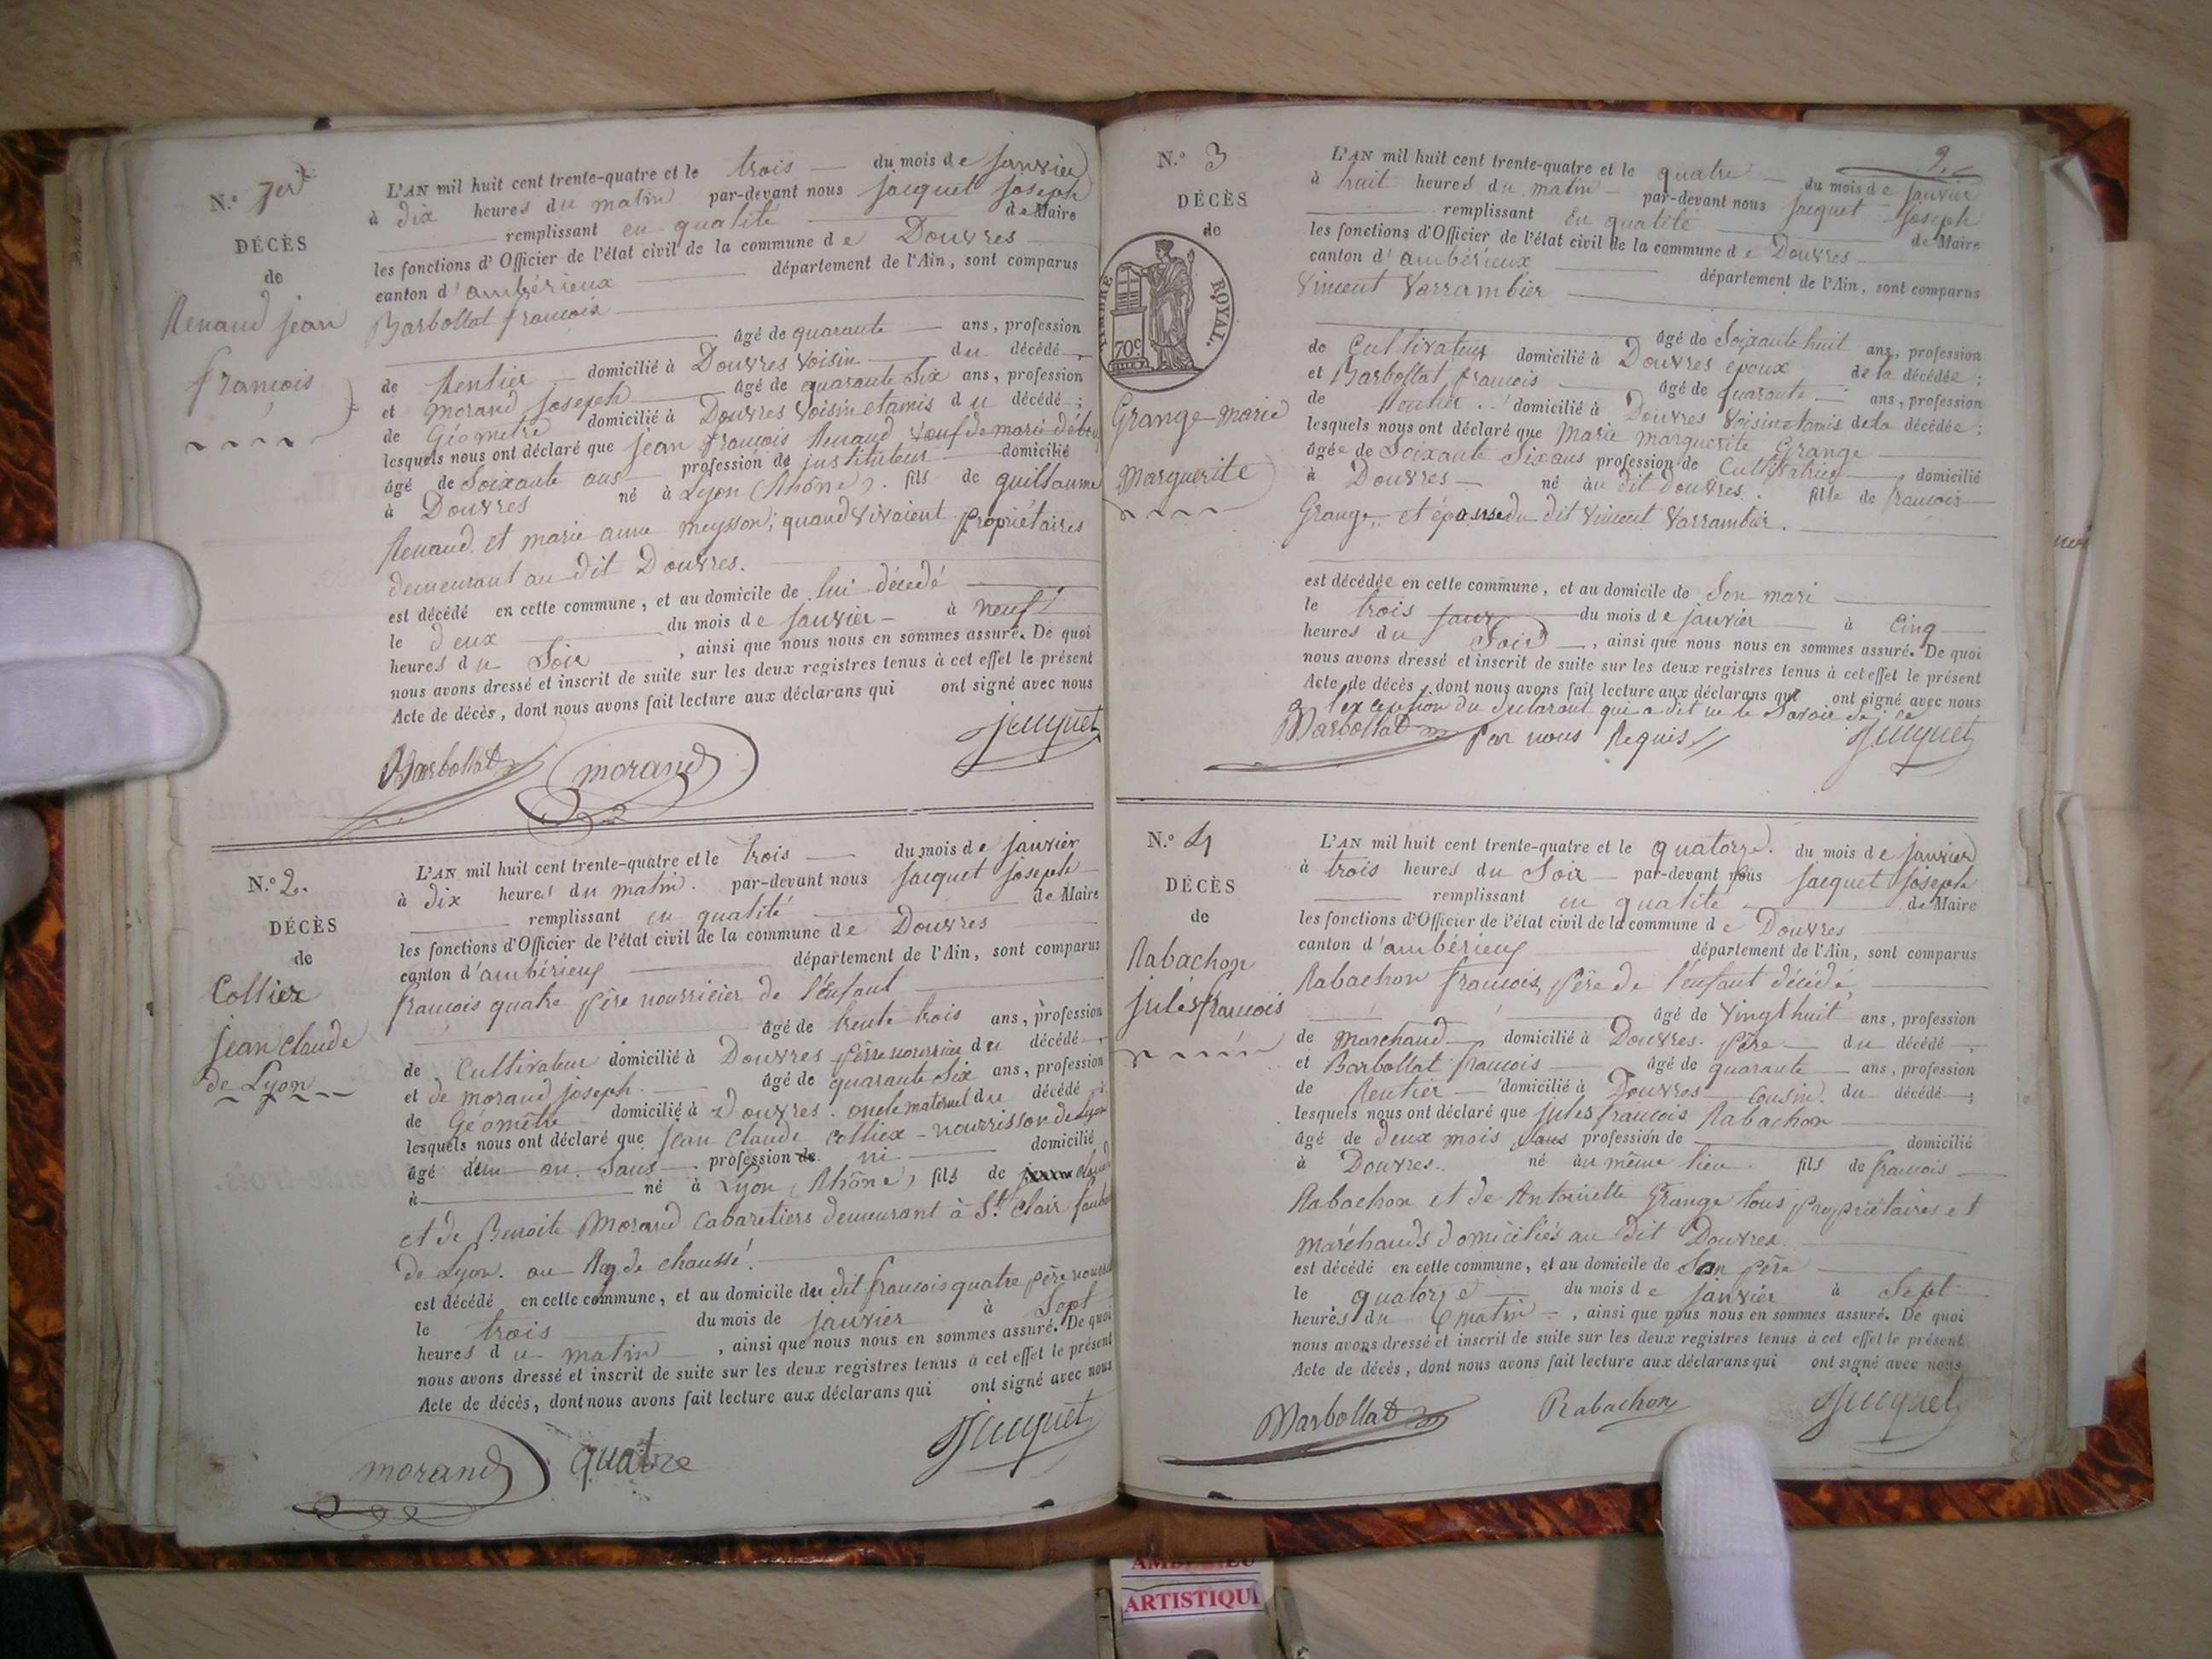 N.o 1er
DÉCÈS
de
Renaud jean
françois
L'AN mil huit cent trente-quatre et le trois du mois de janvier
à dix heures du matin par-devant nous jacquet joseph
remplissant en qualité de Maire
les fonctions d'Officier de l'état civil de la commune de Douvres
canton d'ambérieux département de l'Ain, sont comparus
Barbollat francois
âgé de quarante ans, profession
de Rentier domicilié à Douvres voisin du décédé,
et Morand joseph âgé de quarante six ans, profession
de Géomètre domicilié à Douvres voisin et amis du décédé;
lesquels nous ont déclaré que jean francois Renaud veuf de marie
âgé de Soixante ans profession de instituteur domicilié
à Douvres né à Lyon (Rhône). fils de guillaume
Renaud et marie anne meysson; quand vivaient propriétaires
demeurant au dit Douvres.
est décédé en cette commune, et au domicile de lui décédé
le deux du mois de janvier à neuf
heures du Soir, ainsi que nous nous en sommes assuré. De quoi
nous avons dressé et inscrit de suite sur les deux registres tenus à cet effet le présent
Acte de décès, dont nous avons fait lecture aux déclarans qui ont signé avec nous
Barbollat morand Jacquet
N.o 2.
DÉCÈS
de
Colliex
jean claude
de Lyon
L'AN mil huit cent trente-quatre et le trois du mois de janvier
à dix heures du matin. par-devant nous jacquet joseph
remplissant en qualité de Maire
les fonctions d'Officier de l'état civil de la commune de Douvres
canton d'ambérieux département de l'Ain, sont comparus
francois quatre père nourricier de l'enfant
âgé de trente trois ans, profession
de Cultivateur domicilié à Douvres père nourricier du décédé,
et de morand joseph. âgé de quarante six ans, profession
de Géomètre domicilié à Douvres. oncle maternel du décédé;
lesquels nous ont déclaré que jean Claude Colliex - nourrisson de Lyon
âgé d'un an. Sans profession de ni domicilié
à né à Lyon (Rhône) fils de claude
et de Benoite Morand Cabaretiers demeurant à St. Clair
de Lyon. au Rez de chaussé.
est décédé en cette commune, et au domicile du dit francois quatre père
le trois du mois de janvier à Sept
heures du matin, ainsi que nous nous en sommes assuré. De quoi
nous avons dressé et inscrit de suite sur les deux registres tenus à cet effet le présent
Acte de décès, dont nous avons fait lecture aux déclarans qui ont signé avec nous
morand quatre Jacquet
2.
N.o 3
DÉCÈS
de
TIMBRE ROYAL.
70c
Grange marie
Marguerite
L'AN mil huit cent trente-quatre et le quatre du mois de janvier
à huit heures du matin par-devant nous jacquet joseph
remplissant en qualité de Maire
les fonctions d'Officier de l'état civil de la commune de Douvres
canton d'ambérieux département de l'Ain, sont comparus
Vincent Varrambier
âgé de Soixante huit ans, profession
de Cultivateur domicilié à Douvres époux de la décédée;
et Barbollat francois âgé de quarante ans, profession
de Rentier domicilié à Douvres voisin et amis de la décédée;
lesquels nous ont déclaré que Marie marguerite Grange
âgée de Soixante Six ans profession de Cultivatrice domicilié
à Douvres né au dit Douvres. fille de francois
Grange. et épouse du dit Vincent Varrambier.
est décédée en cette commune, et au domicile de Son mari
le trois du mois de janvier à Cinq
heures du Soir, ainsi que nous nous en sommes assuré. De quoi
nous avons dressé et inscrit de suite sur les deux registres tenus à cet effet le présent
Acte de décès, dont nous avons fait lecture aux déclarans qui ont signé avec nous
a l'exception du déclarant qui a dit ne le Savoir de ce
Barbollat par nous Requis Jacquet
N.o 4
DÉCÈS
de
Rabachon
jules francois
L'AN mil huit cent trente-quatre et le quatorze. du mois de janvier
à trois heures du Soir par-devant nous jacquet joseph
remplissant en qualité de Maire
les fonctions d'Officier de l'état civil de la commune de Douvres
canton d'ambérieux département de l'Ain, sont comparus
Rabachon francois, père de l'enfant décédé,
âgé de vingt huit ans, profession
de Marchand domicilié à Douvres. père du décédé,
et Barbollat francois âgé de quarante ans, profession
de Rentier domicilié à Douvres cousin. du décédé;
lesquels nous ont déclaré que jules francois Rabachon
âgé de deux mois Sans profession de domicilié
à Douvres. né au même lieu. fils de francois
Rabachon et de Antoinette Grange tous propriétaires et
marchands domiciliés au dit Douvres.
est décédé en cette commune, et au domicile de Son père
le quatorze du mois de janvier à Sept
heures du matin, ainsi que nous nous en sommes assuré. De quoi
nous avons dressé et inscrit de suite sur les deux registres tenus à cet effet le présent
Acte de décès, dont nous avons fait lecture aux déclarans qui ont signé avec nous
Barbollat Rabachon Jacquet
ARTISTIQU